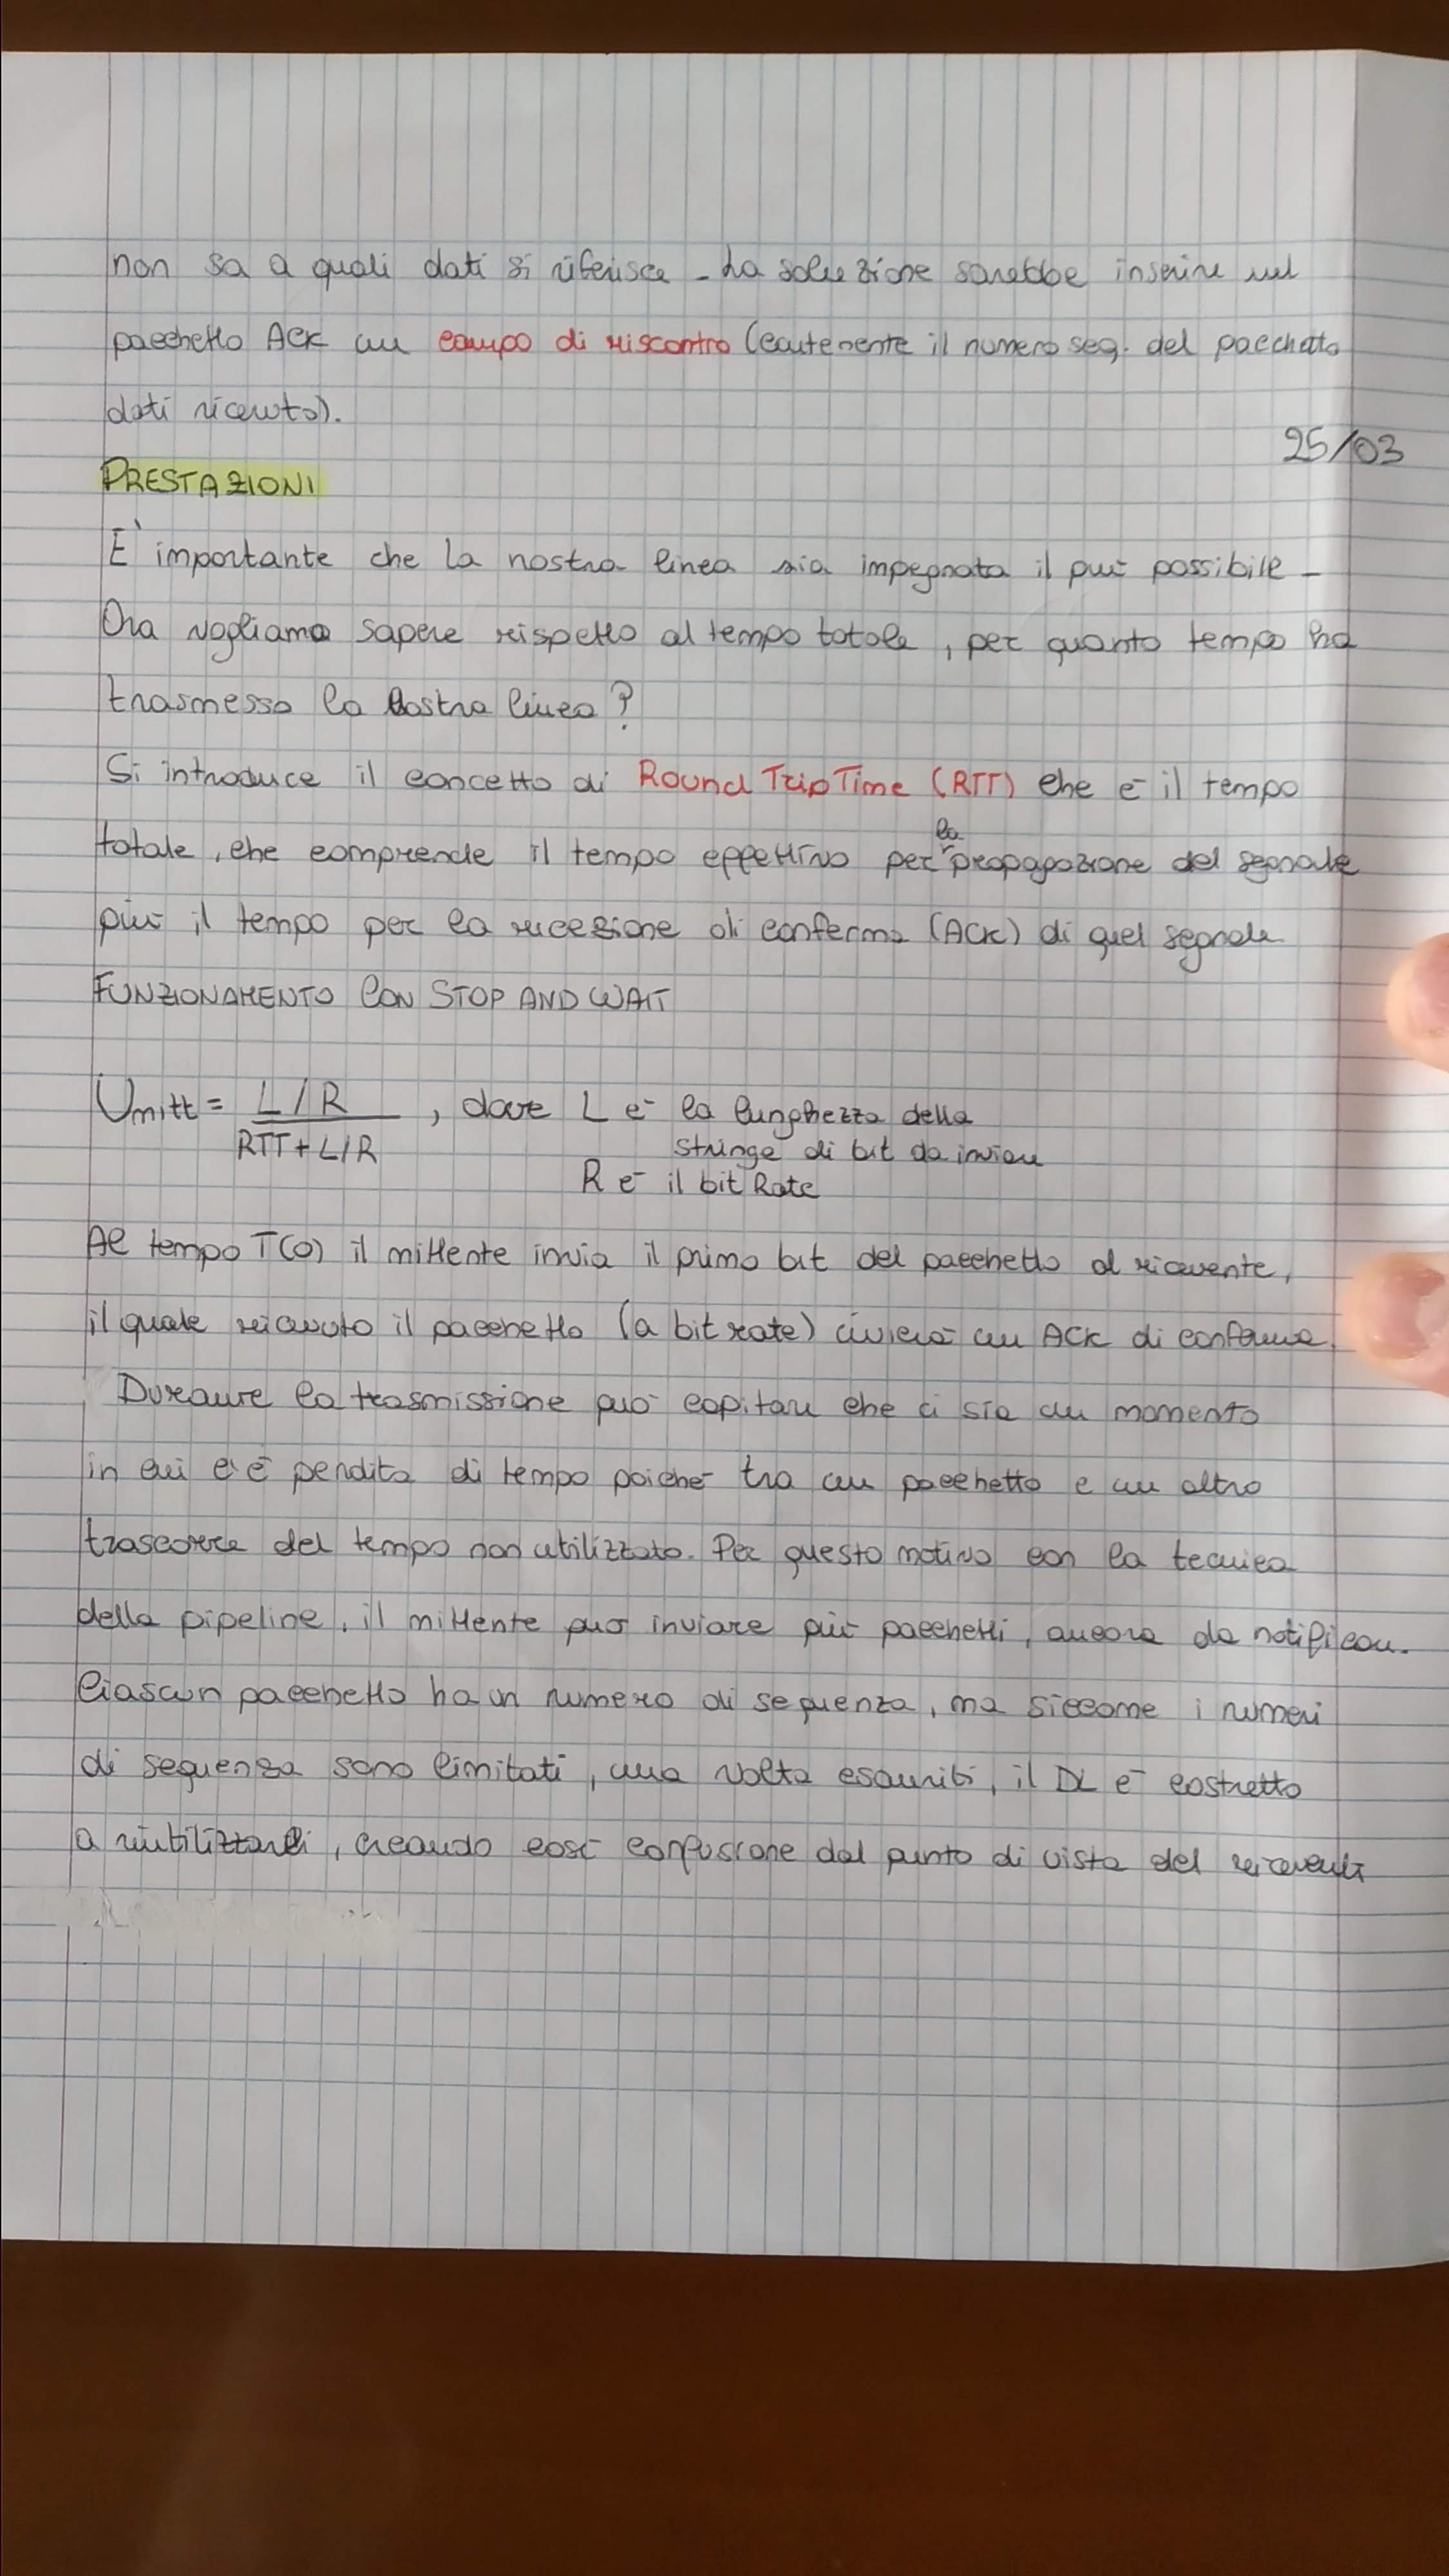 non sa a quali dati si riferisce - La soluzione sarebbe inserire nel
pacchetto ACK un campo di riscontro (contenente il numero seq. del pacchetto
dati ricevuto).
25/03
PRESTAZIONI
E' importante che la nostra linea sia impegnata il più possibile -
Ora vogliamo sapere rispetto al tempo totale, per quanto tempo ha
trasmesso la nostra linea?
Si introduce il concetto di Round Trip Time (RTT) che è il tempo
totale, che comprende il tempo effettivo per la propagazione del segnale
più il tempo per la ricezione di conferma (ACK) di quel segnale
FUNZIONAMENTO CON STOP AND WAIT
Umitt = L/R , dove L è la lunghezza della
RTT + L/R stringe di bit da inviare
R è il bit Rate
Al tempo T(0) il mittente invia il primo bit del pacchetto al ricevente,
il quale ricevuto il pacchetto (a bit rate) invierà un ACK di conferma.
Durante la trasmissione può capitare che ci sia un momento
in cui c'è perdita di tempo poiché tra un pacchetto e un altro
trascorre del tempo non utilizzato. Per questo motivo con la tecnica
della pipeline, il mittente può inviare più pacchetti, ancora da notificare.
Ciascun pacchetto ha un numero di sequenza, ma siccome i numeri
di sequenza sono limitati, una volta esauriti, il DL è costretto
a riutilizzarli, creando così confusione dal punto di vista del ricevente